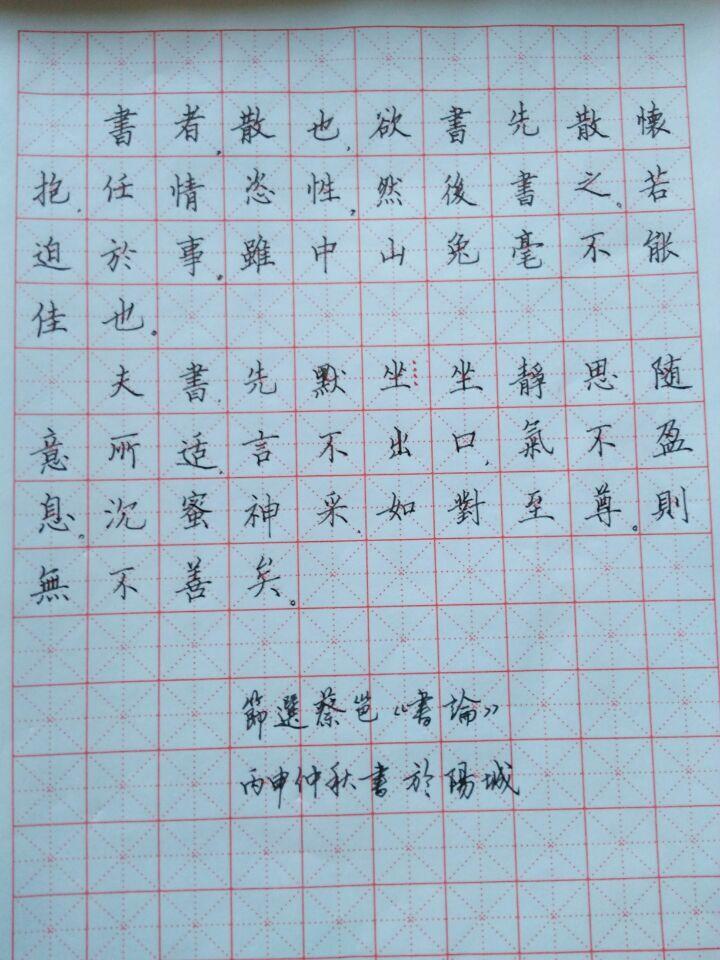 書者,散也,欲書先散懷
抱,任情恣性,然後書之。若
迫於事。雖中山兔毫不能
佳也。
夫書,先默坐坐靜思,随
意所适,言不出口,氣不盈
息。沉蜜神采,如對至尊。則
無不善矣。
節選蔡邕《書論》
丙申仲秋書於陽城